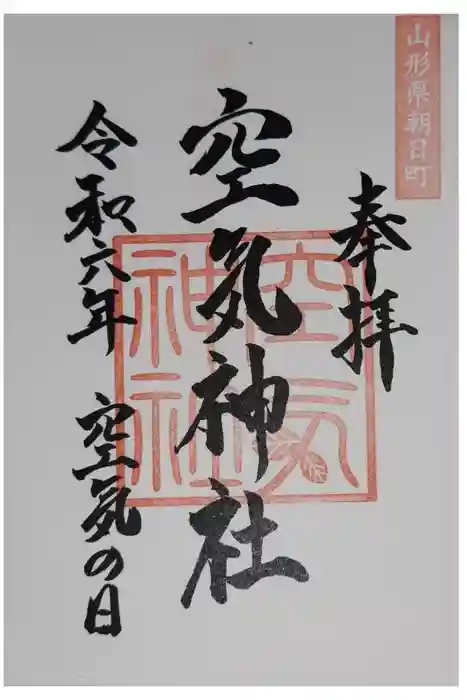 山形県朝日町
奉拝
空気神社
空気
神社
令和六年 空気の日